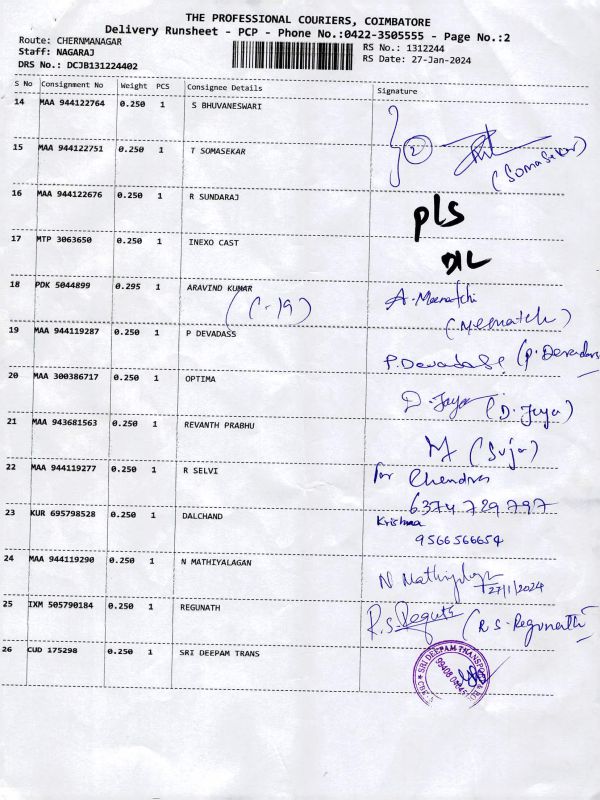 THE PROFESSIONAL COURIERS, COIMBATORE
Delivery Runsheet - PCP - Phone No.:0422-3505555 - Page No.:2
Route: CHERNMANAGAR RS No.: 1312244
Staff: NAGARAJ RS Date: 27-Jan-2024
DRS No.: DCJB131224402
S No Consignment No Weight PCS Consignee Details Signature
14 MAA 944122764 0.250 1 S BHUVANESWARI
15 MAA 944122751 0.250 1 T SOMASEKAR 2 (Somasekar)
16 MAA 944122676 0.250 1 R SUNDARAJ pls
17 MTP 3063650 0.250 1 INEXO CAST
18 PDK 5044899 0.295 1 ARAVIND KUMAR A. Meenatchi
(C-19) (Meenatchi)
19 MAA 944119287 0.250 1 P DEVADASS P. Devadass (P. Devadass
20 MAA 300386717 0.250 1 OPTIMA D. Jaya (D. Jaya)
21 MAA 943681563 0.250 1 REVANTH PRABHU (Suja)
22 MAA 944119277 0.250 1 R SELVI for Chendra
6374 729 797
23 KUR 695798528 0.250 1 DALCHAND Krishna
9566566654
24 MAA 944119290 0.250 1 N MATHIYALAGAN N Mathiyalagan
27/1/2024
25 IXM 505790184 0.250 1 REGUNATH R.S. Regunath (R S - Regunath)
26 CUD 175298 0.250 1 SRI DEEPAM TRANS SRI DEEPAM TRANSPORT